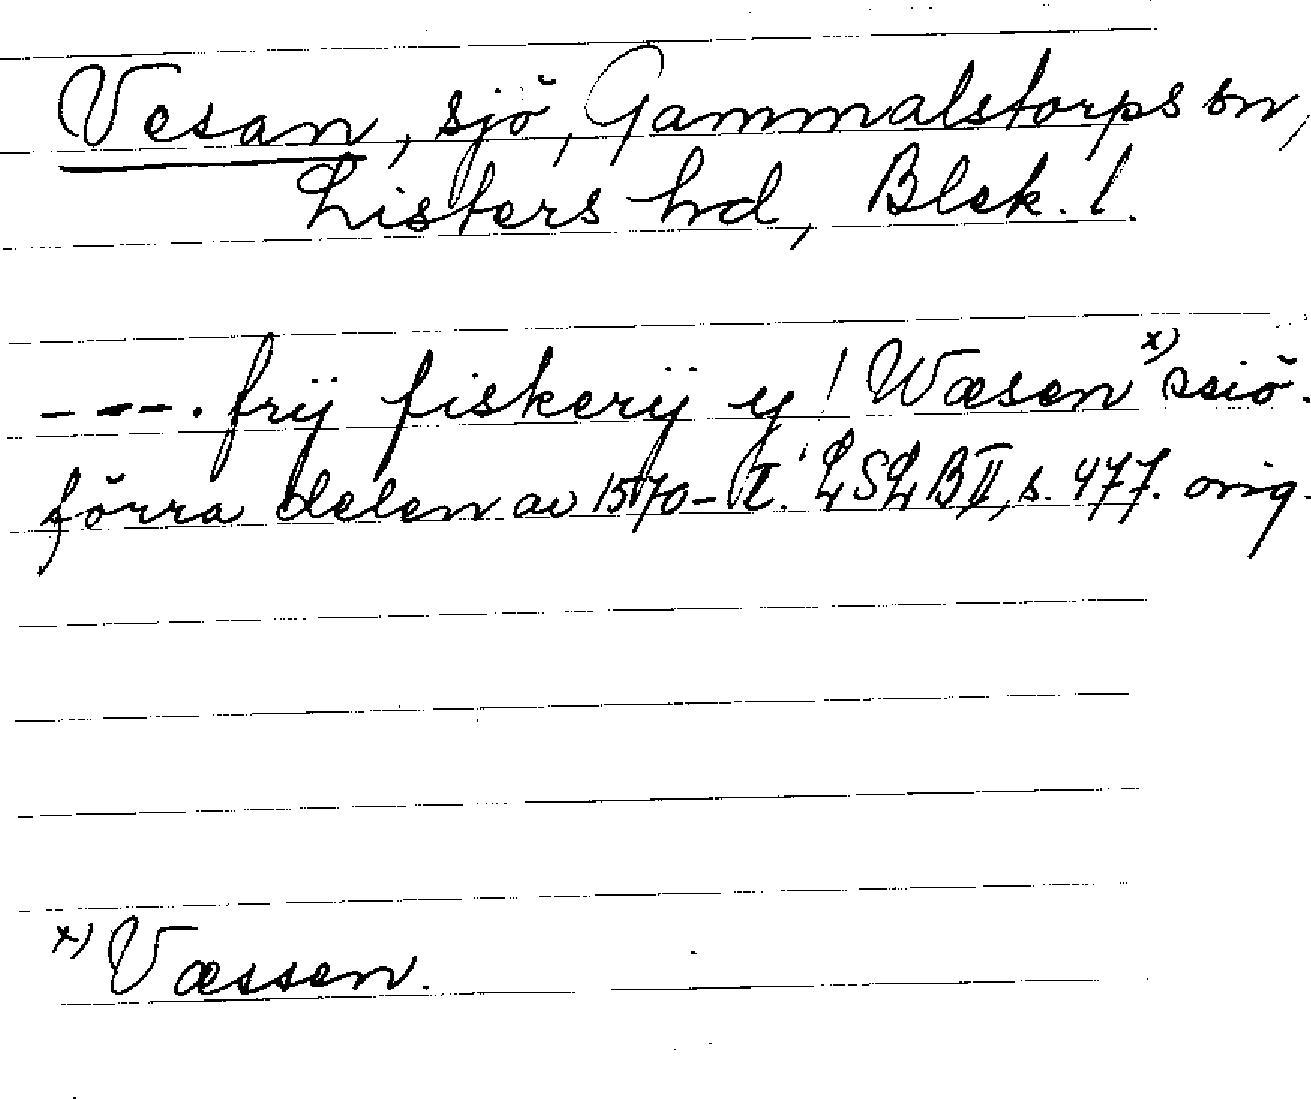 Vesan, sjö, Gammalstorps sn,
Listers hd, Blek. l.
---. frij fiskerij y! Wæsen x) ssiö.
förra delen av 1570-t. LSLB II, s. 477. orig.
x) Væssen.